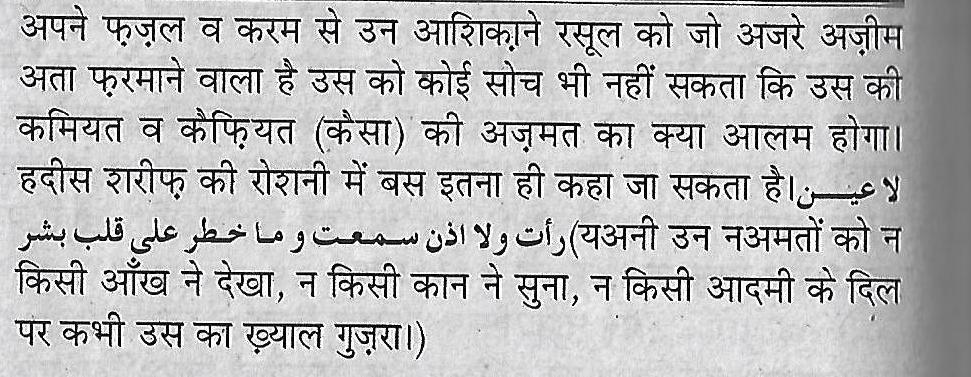 अपने फ़ज़्ल व करम से उन आशिक़ाने रसूल को जो अजरे अज़ीम
अता फ़रमाने वाला है उस को कोई सोच भी नहीं सकता कि उस की
कमियत व कैफ़ियत (कैसा) की अज़मत का क्या आलम होगा।
हदीस शरीफ़ की रोशनी में बस इतना ही कहा जा सकता है।لا عين
رأت ولا اذن سمعت و ما خطر على قلب بشر(यअनी उन नअमतों को न
किसी आँख ने देखा, न किसी कान ने सुना, न किसी आदमी के दिल
पर कभी उस का ख़्याल गुज़रा।)